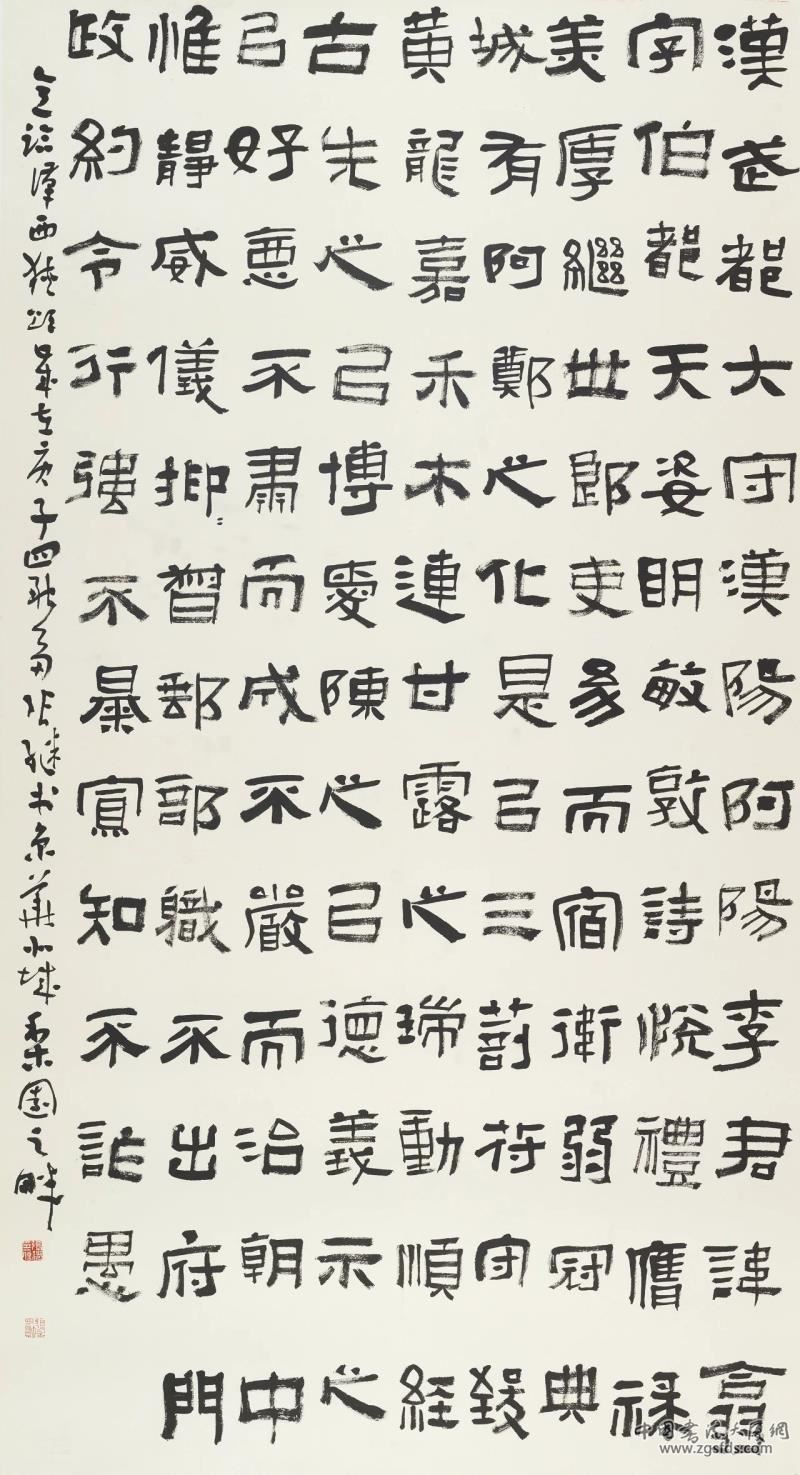 漢武都大守漢陽阿陽李君諱翕
字伯都天姿明敏敦詩悅禮膺祿
美厚繼世郎吏幼而宿衛弱冠典
城有阿鄭之化是以三剖符守致
黃龍嘉禾木連甘露之瑞動順經
古先之以博愛陳之以德義示之
以好惡不肅而成不嚴而治朝中
惟靜威儀抑〻督郵部職不出府門
政約令行強不暴寡知不詐愚
意臨漢西狹頌歲在庚子四張繼書京華小城梨園之畔
中国书法大展網
www.zgsfds.com